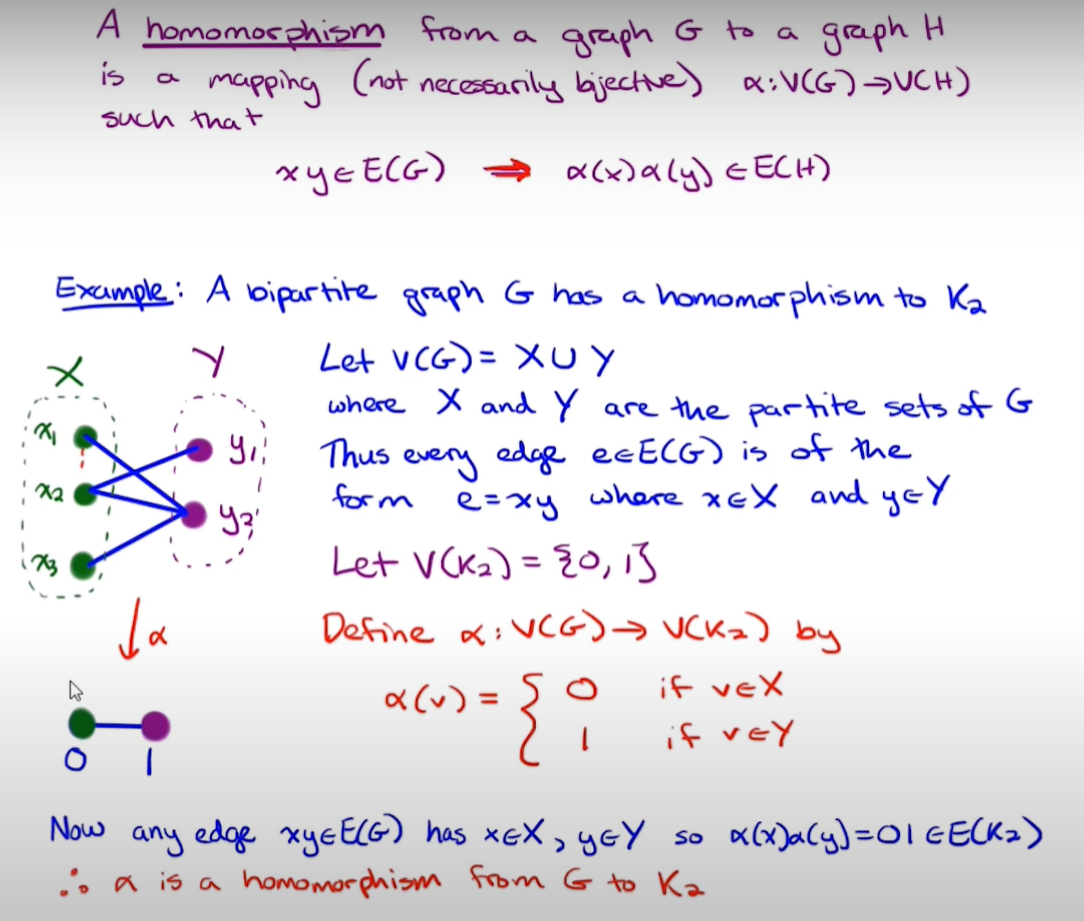 A homomorphism from a graph G to a graph H
is a mapping (not necessarily bijective) α:V(G)→V(H)
such that
xy∈E(G) ⇒ α(x)α(y)∈E(H)
Example: A bipartite graph G has a homomorphism to K₂
X Y
x₁
x₂
x₃
y₁
y₂
Let V(G)= X∪Y
where X and Y are the partite sets of G
Thus every edge e∈E(G) is of the
form e=xy where x∈X and y∈Y
Let V(K₂)={0,1}
↓α
Define α:V(G)→V(K₂) by
α(v)= { 0 if v∈X
1 if v∈Y
0 1
Now any edge xy∈E(G) has x∈X, y∈Y so α(x)α(y)=01∈E(K₂)
∴ α is a homomorphism from G to K₂